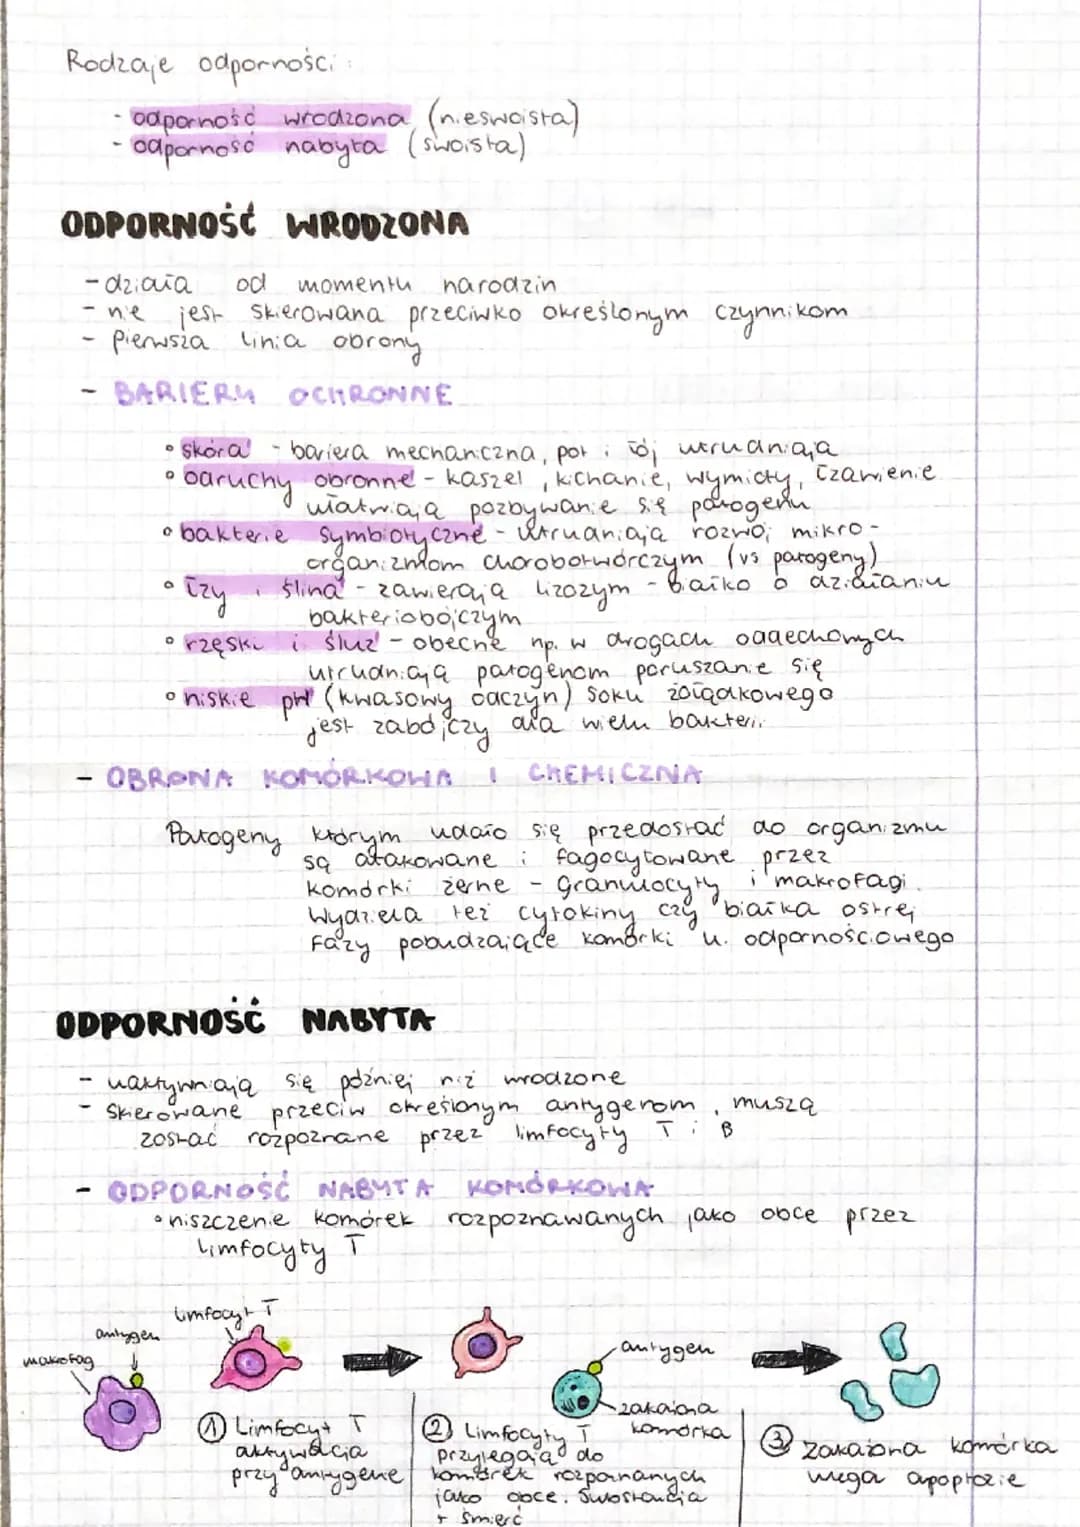 Rodzaje odporności:
- odporność wrodzona (nieswoista)
- odporność nabyta (swoista)
ODPORNOŚĆ WRODZONA
- działa od momentu narodzin
- nie jest skierowana przeciwko określonym czynnikom
- pierwsza linia obrony
- BARIERY OCHRONNE
• skóra - bariera mechaniczna, pot i łój utrudniają
• odruchy obronne - kaszel, kichanie, wymioty, łzawienie
ułatwiają pozbywanie się patogenu
• bakterie symbiotyczne - utrudniają rozwój mikro-
organizmom chorobotwórczym (vs patogeny)
• łzy i ślina - zawierają lizozym - białko o działaniu
bakteriobójczym
• rzęski i śluz - obecne np. w drogach oddechowych
utrudniają patogenom poruszanie się
• niskie pH (kwasowy odczyn) soku żołądkowego
jest zabójczy dla wielu bakterii
- OBRONA KOMÓRKOWA I CHEMICZNA
Patogeny którym udało się przedostać do organizmu
są atakowane i fagocytowane przez
komórki żerne - granulocyty i makrofagi.
Wydziela też cytokiny czy białka ostrej
fazy pobudzające komórki u. odpornościowego
ODPORNOŚĆ NABYTA
- uaktywniają się później niż wrodzone
- skierowane przeciw określonym antygenom, muszą
zostać rozpoznane przez limfocyty T i B
- ODPORNOŚĆ NABYTA KOMÓRKOWA
• niszczenie komórek rozpoznawanych jako obce przez
limfocyty T
makrofag
antygen
limfocyt T
antygen
zakaźona
komórka
① Limfocyt T
aktywacja
przy antygene
② Limfocyty T
przylegają do
komórek rozpoznanych
jako obce. Substancja
+ śmierć
③ zakaźona komórka
ulega apoptozie